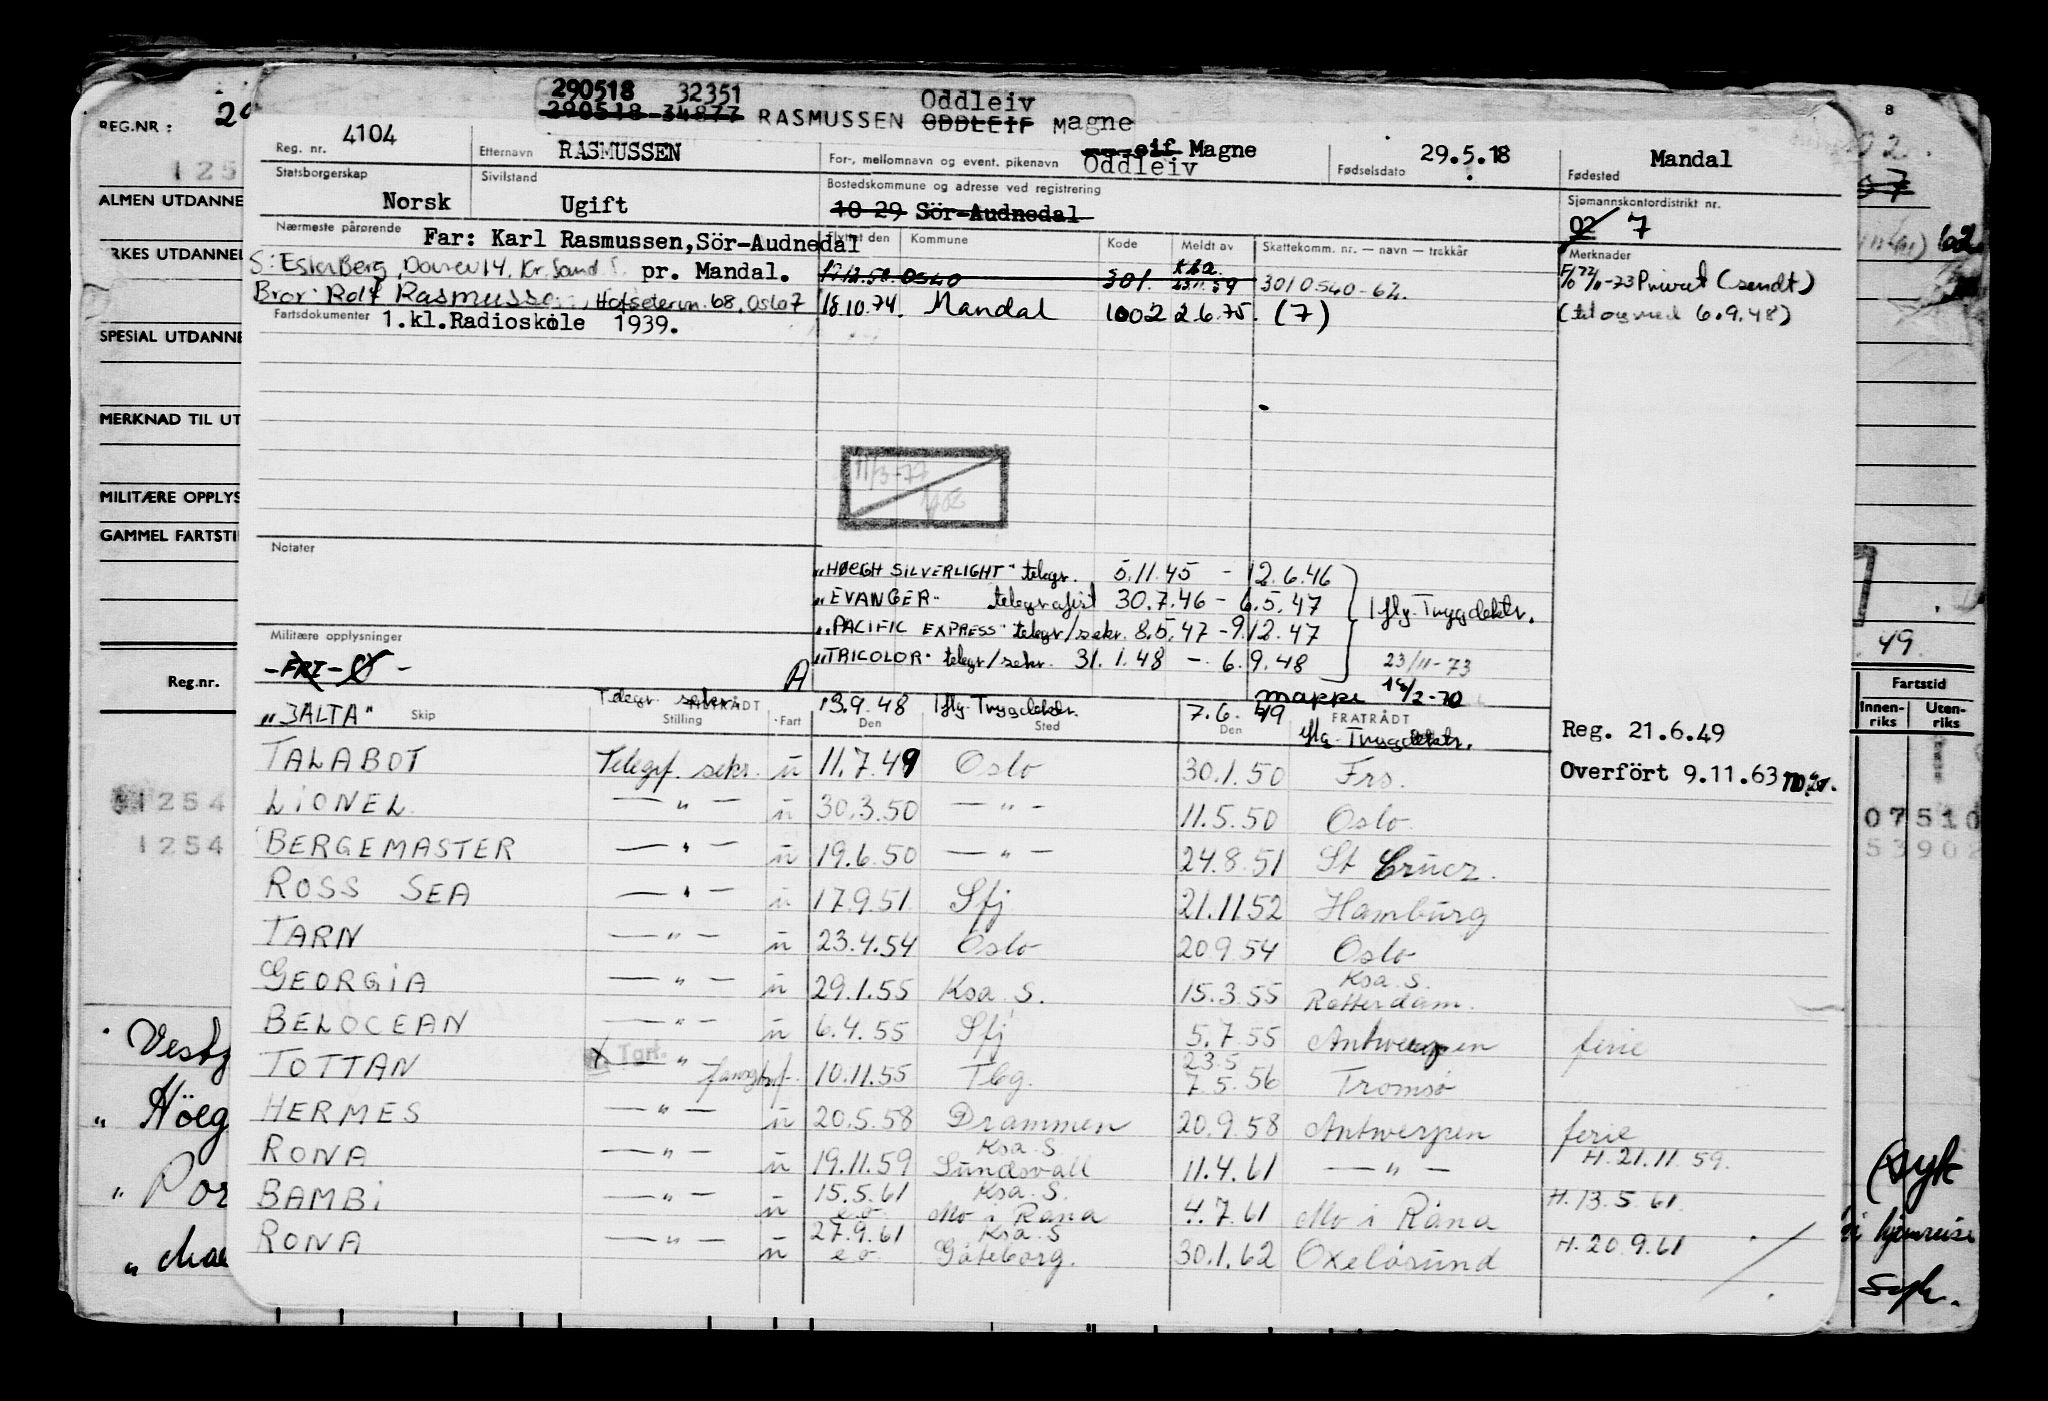 290518 32351 Oddleiv
290518-34877 RASMUSSEN ODDLEIF Magne
REG.NR :
8
Reg. nr. 4104 Etternavn RASMUSSEN For-, mellomnavn og event. pikenavn Magne Oddleiv Fødselsdato 29.5.18 Fødested Mandal
Statsborgerskap Norsk Sivilstand Ugift Bostedskommune og adresse ved registrering 10 29 Sör-Audnedal Sjømannskontordistrikt nr. 02 7
ALMEN UTDANNE
Nærmeste pårørende Far: Karl Rasmussen, Sör-Audnedal
Flyttet den Kommune Kode Meldt av Skattekomm. nr. — navn — trekkår Merknader
S: Berg, 14, Kr.Sand S. pr. Mandal. 0540 301 23.11.59 3010540-64. Privat (sendt)
Bror: Rolf Rasmussen, 68, Oslo 7 18.10.74. Mandal 1002 2.6.75. (7) (til og med 6.9.48)
Fartsdokumenter 1.kl.Radioskole 1939.
RKES UTDANNEL
SPESIAL UTDANNE
MERKNAD TIL UT
MILITÆRE OPPLYS
GAMMEL FARTSTI
11/3-77
Notater
„HØEGH SILVERLIGHT" telegr. 5.11.45 - 12.6.46
„EVANGER" telegrafist 30.7.46 - 6.5.47 iflg. Trygdektr.
„PACIFIC EXPRESS" telegr/sekr. 8.5.47 - 9.12.47
„TRICOLOR" telegr/sekr. 31.1.48 - 6.9.48 23/11-73
Militære opplysninger
-FRI- A
mappe 2-70
Reg.nr.
Fartstid
Innen-riks Uten-riks
„JALTA" Telegr. sekr. 13.9.48 iflg. Trygdektr. 7.6.49 iflg. Trygdektr.
Skip TILTRÅDT Stilling Fart Den Sted Den FRATRÅDT
Reg. 21.6.49
TALABOT Telegrf. sekr. u 11.7.49 Oslo 30.1.50 Frs. Overfört 9.11.63
LIONEL — " — u 30.3.50 — " — 11.5.50 Oslo.
BERGEMASTER — " — u 19.6.50 — " — 24.8.51 St Crucz.
ROSS SEA — " — u 17.9.51 Sfj 21.11.52 Hamburg
TARN — " — u 23.4.54 Oslo 20.9.54 Oslo
GEORGIA — " — u 29.1.55 Ksa. S. 15.3.55 Ksa. S. Rotterdam.
BELOCEAN — " — u 6.4.55 Sfj 5.7.55 Antwerpen ferie
TOTTAN — " — 10.11.55 Tbg. 23.5 7.5.56 Tromsø
HERMES — " — u 20.5.58 Drammen 20.9.58 Antwerpen ferie
RONA — " — u 19.11.59 Ksa. S. Sundsvall 11.4.61 — " — H. 21.11.59.
BAMBI — " — u 15.5.61 e.o. Ksa. S. Mo i Rana 4.7.61 Mo i Rana H. 13.5.61
RONA — " — u 27.9.61 e.o. Ksa. S Göteborg. 30.1.62 Oxelösund H. 20.9.61
1254
1254
07510
53902
Höeg
Syk
hjemreise
Syk.